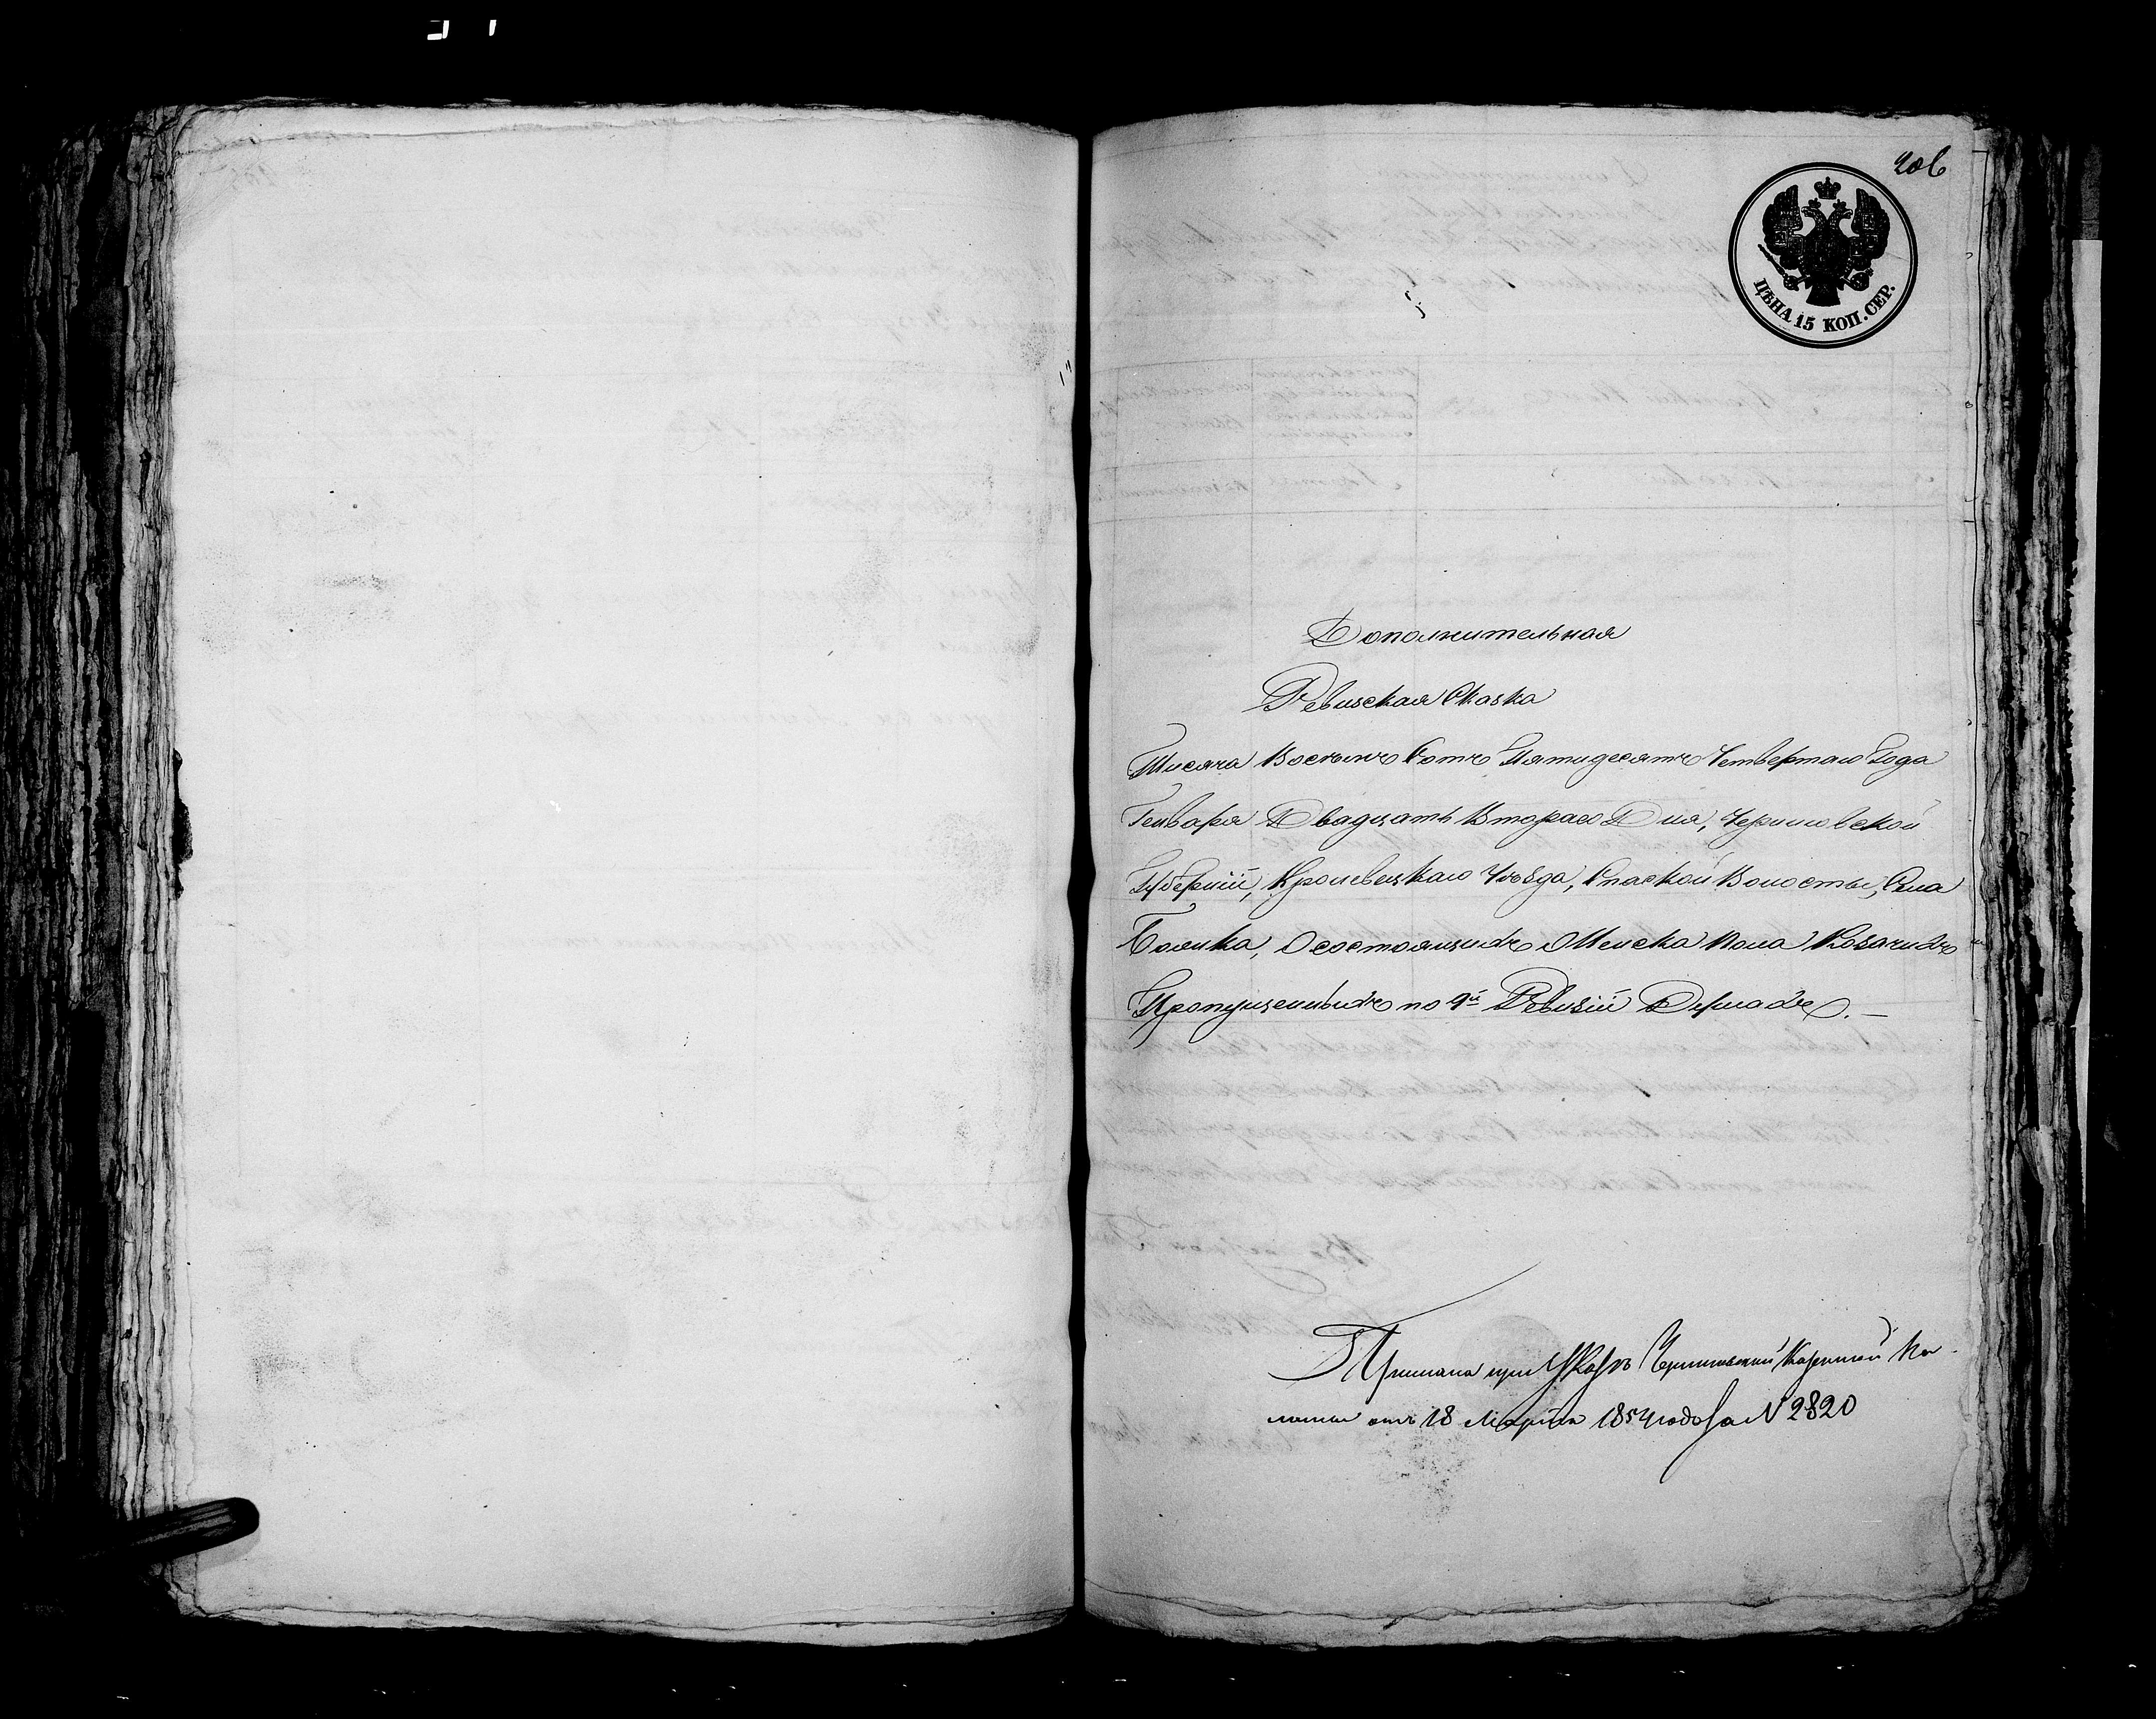 206
ЦѢНА 15 КОП. СЕР.
Дополнительная
Ревизская Сказка
Тисяча Восемъ Сотъ Пятидесятъ Четвертаго Года
Генваря Двадцать Втораго Дня, Черниговской
Губерніи, Кролевецкаго Уѣзда, Спаской Волости, Села
Тулика, О состоящихъ Мужеска пола Козачихъ
Пропущенныхъ по 9й Ревизіи Душахъ. —
Прислана при Указѣ Черниговской Казенной Па-
латы отъ 18 Марта 1854 года за N 2820